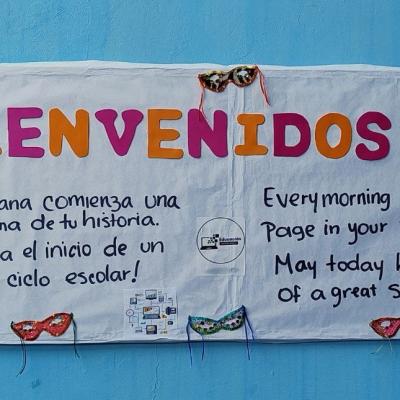 IENVENIDOS
ana comienza una
na de tu historia.
a el inicio de un
ciclo escolar!
Educación
Every morning
Page in your
May today b
of a great s